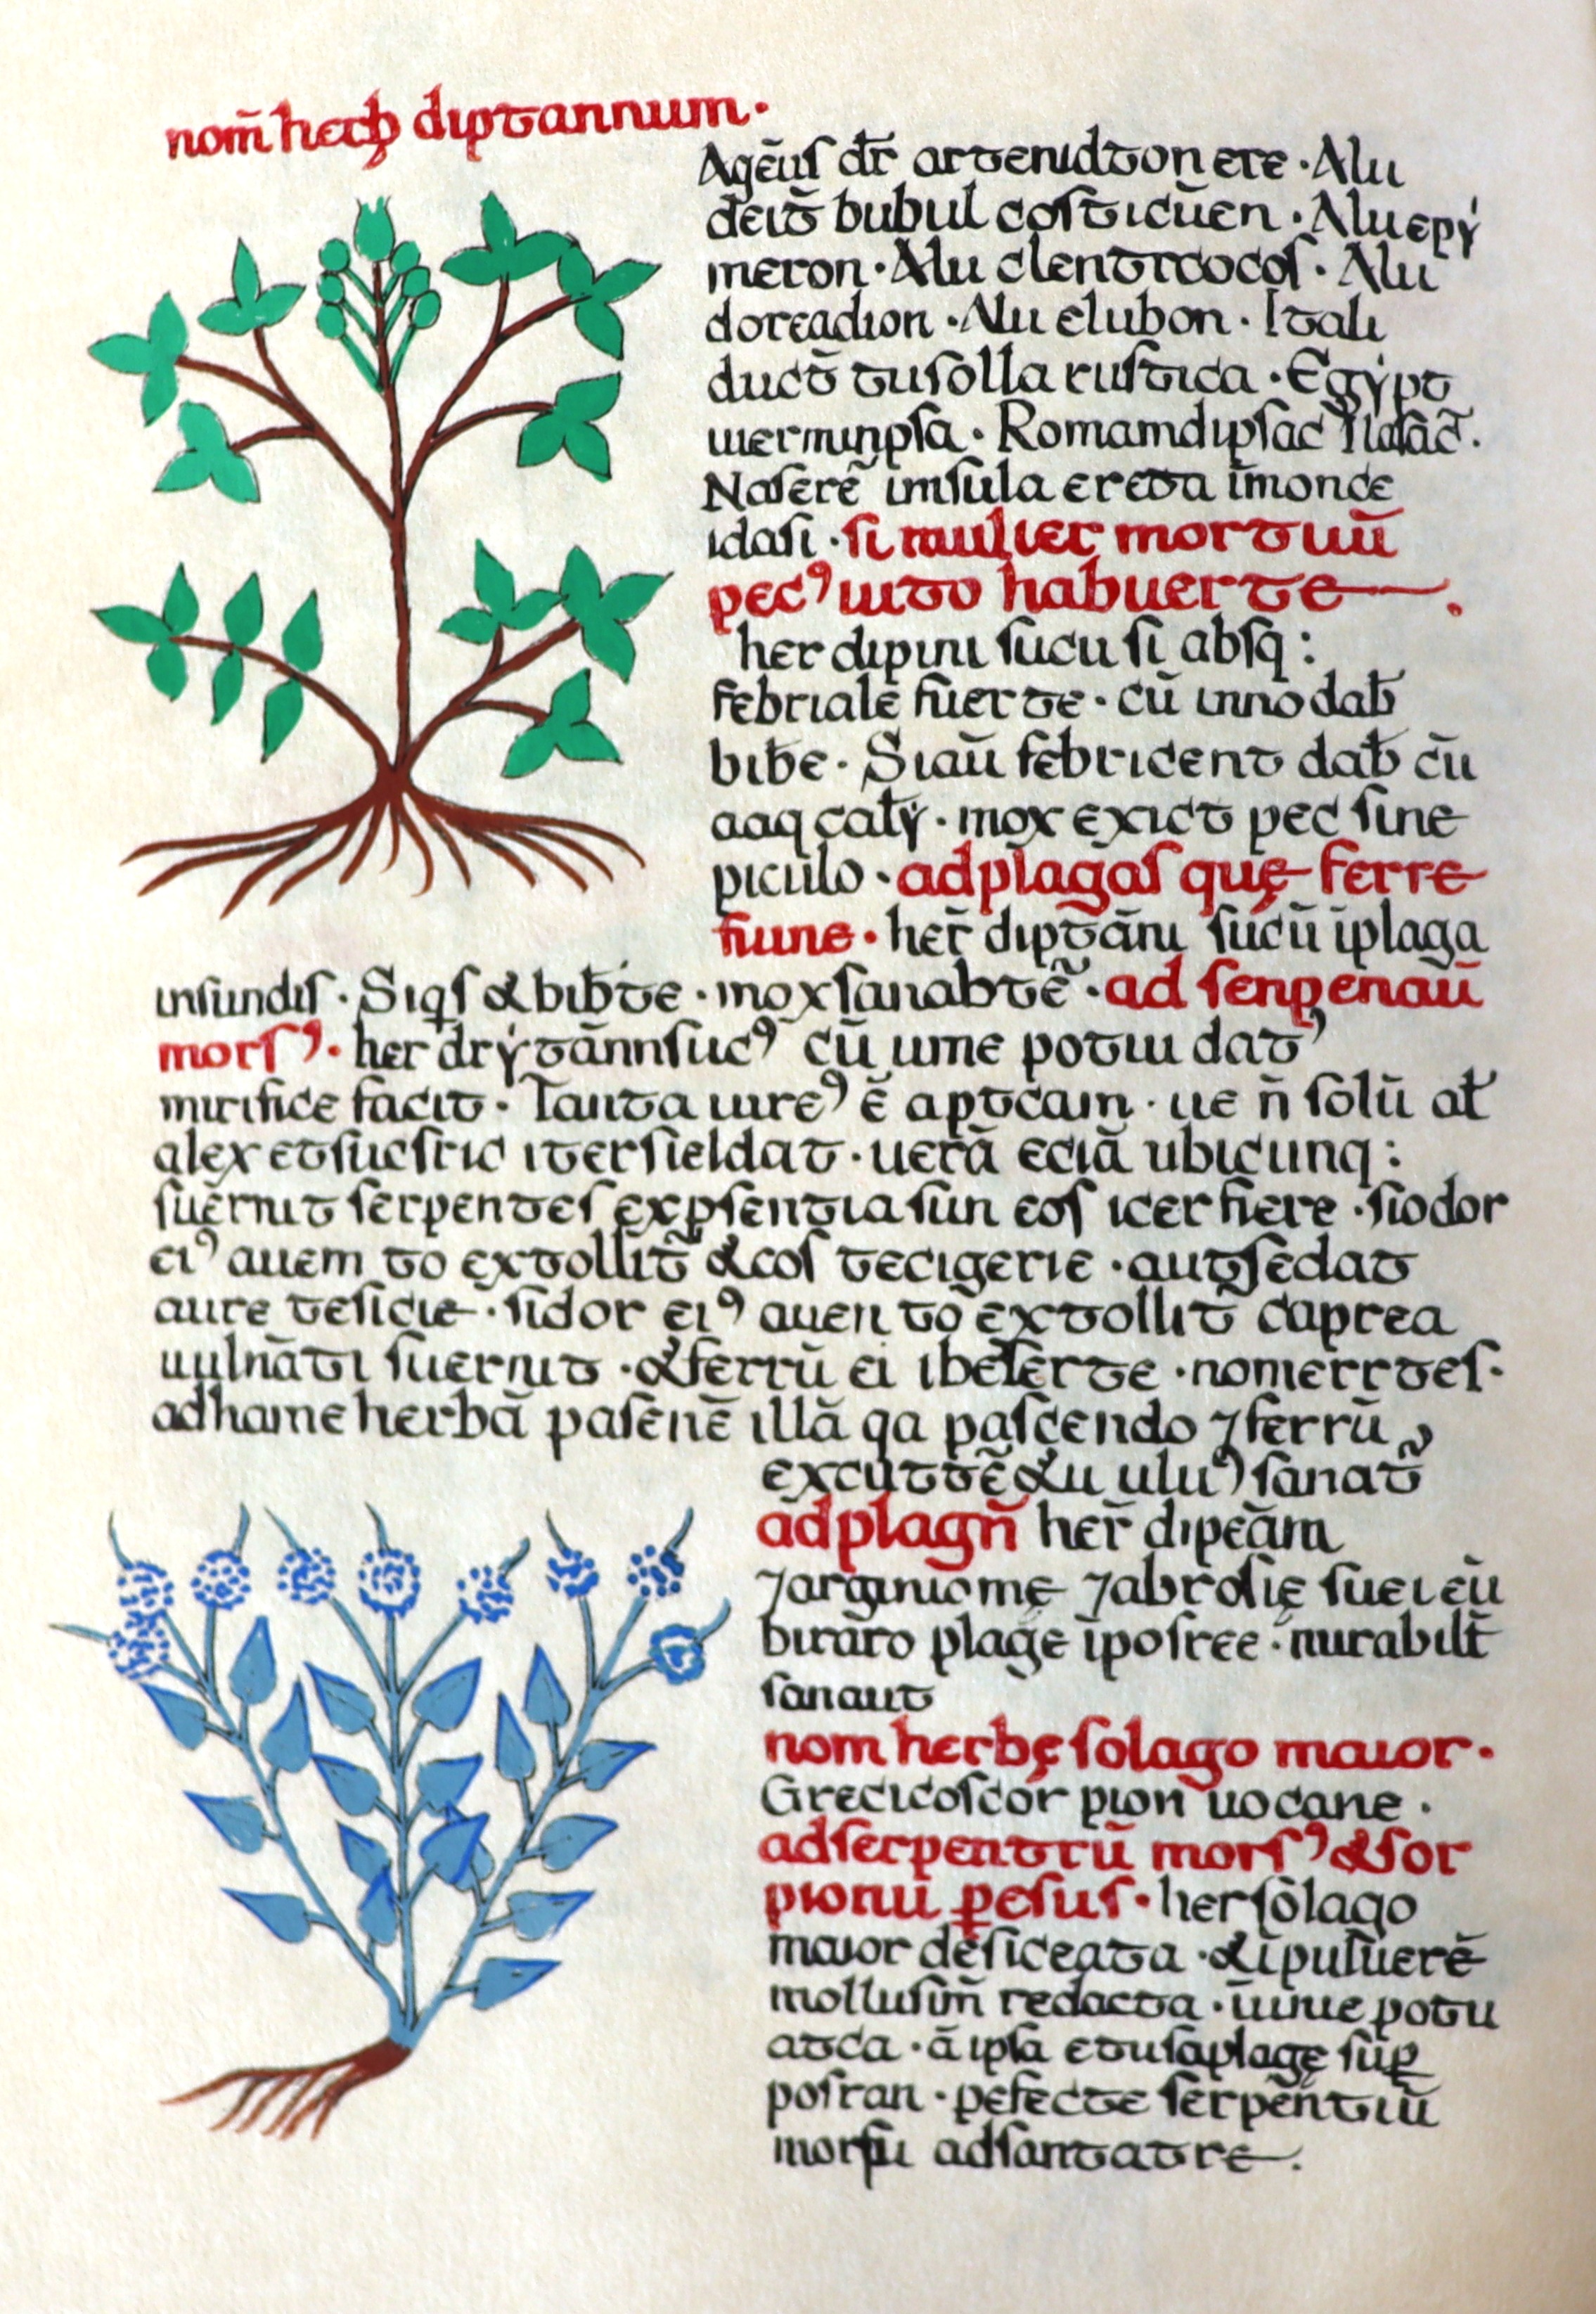 nom̄ herḅ diptannum·
Agēuſ dr̄ artenidton ere · Alu
dēit̄ bubul coſticūen · Alu epẏ
meron · Alu clentrcocoſ · Alu
doreadion · Alu elubon · Itali
duct̄ tuſolla ruſtica · Egẏpt
uerminpſa · Romamdipſac
Naſerē imſula ereta īmonce
idaſi · ſi mulier mortuū
pecꝰ utto habuerte
her dipini ſucu ſi abſq :
febriale fuerte · cū inno dab̄
bibe · Siaū febricent dab̄ cū
aaq calẏ · mox exict pec ſine
piculo · adplagaſ quę ferre
fiune · her̄ diptān ſucū īplaga
infundiſ · Siqſ & bib̄te · mox ſanabtē · ad ſenpenaū
morſꝰ · her drẏtānnſucꝰ cū ume potui datꝰ
mirifice facit · Tanta uireꝰ ē aptcam · ue n̄ ſolū at̄
alex etſucſric iterſieldat · uerā eciā ubicunq :
ſuērnit ſerpenteſ expſentia ſun eoſ icer fiere · ſiodor
eiꝰ auem to extollit̄ & coſ tecigerie · autſedat
aure teſicie · ſidor eiꝰ auen to extollit̄ caprea
uulnāti fuernit · & ferrū ei ibeſerte · nomerrteſ ·
adhame herbā paſēnē illā qa paſcendo ⁊ferrū
excuttē & u uluꝰ ſanat̄
adplagn̄ her̄ dipeām
⁊arginiomę ⁊abroſię ſuei eū
birāro plage īpoſree · mirabilt̄
ſanaut
nom herbę ſolago maior ·
Grecicoſcor pion uocane ·
adſerpentrū morſꝰ & ſor
pionu ꝑeſuſ · her ſōlago
maior deſiceata · & īpulūerē
molluſim̄ redacta · īuine potu
atca · ā ipſa etuſāplagę ſuꝑ
poſran · pefecte ſerpēntiū
morſu adſantatre ·